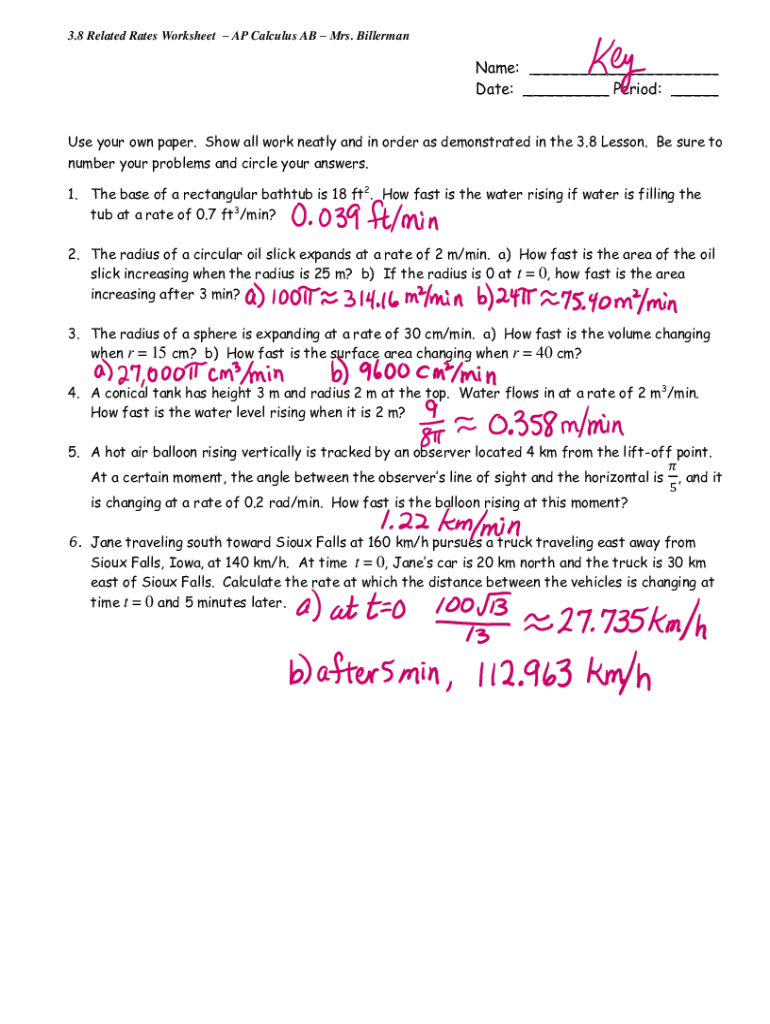 3.8 Related Rates Worksheet – AP Calculus AB – Mrs. Billerman
Name: Key
Date: __________ Period: ______
Use your own paper. Show all work neatly and in order as demonstrated in the 3.8 Lesson. Be sure to
number your problems and circle your answers.
1. The base of a rectangular bathtub is 18 ft². How fast is the water rising if water is filling the
tub at a rate of 0.7 ft³/min? 0.039 ft/min
2. The radius of a circular oil slick expands at a rate of 2 m/min. a) How fast is the area of the oil
slick increasing when the radius is 25 m? b) If the radius is 0 at t = 0, how fast is the area
increasing after 3 min? a) 100π ≈ 314.16 m²/min b) 24π ≈ 75.40 m²/min
3. The radius of a sphere is expanding at a rate of 30 cm/min. a) How fast is the volume changing
when r = 15 cm? b) How fast is the surface area changing when r = 40 cm?
a) 27,000π cm³/min b) 9600 cm²/min
4. A conical tank has height 3 m and radius 2 m at the top. Water flows in at a rate of 2 m³/min.
How fast is the water level rising when it is 2 m? 9/8π ≈ 0.358 m/min
5. A hot air balloon rising vertically is tracked by an observer located 4 km from the lift-off point.
At a certain moment, the angle between the observer's line of sight and the horizontal is π/5, and it
is changing at a rate of 0.2 rad/min. How fast is the balloon rising at this moment?
1.22 km/min
6. Jane traveling south toward Sioux Falls at 160 km/h pursues a truck traveling east away from
Sioux Falls, Iowa, at 140 km/h. At time t = 0, Jane's car is 20 km north and the truck is 30 km
east of Sioux Falls. Calculate the rate at which the distance between the vehicles is changing at
time t = 0 and 5 minutes later. a) at t=0 100√13/13 ≈ 27.735 km/h
b) after 5 min, 112.963 km/h